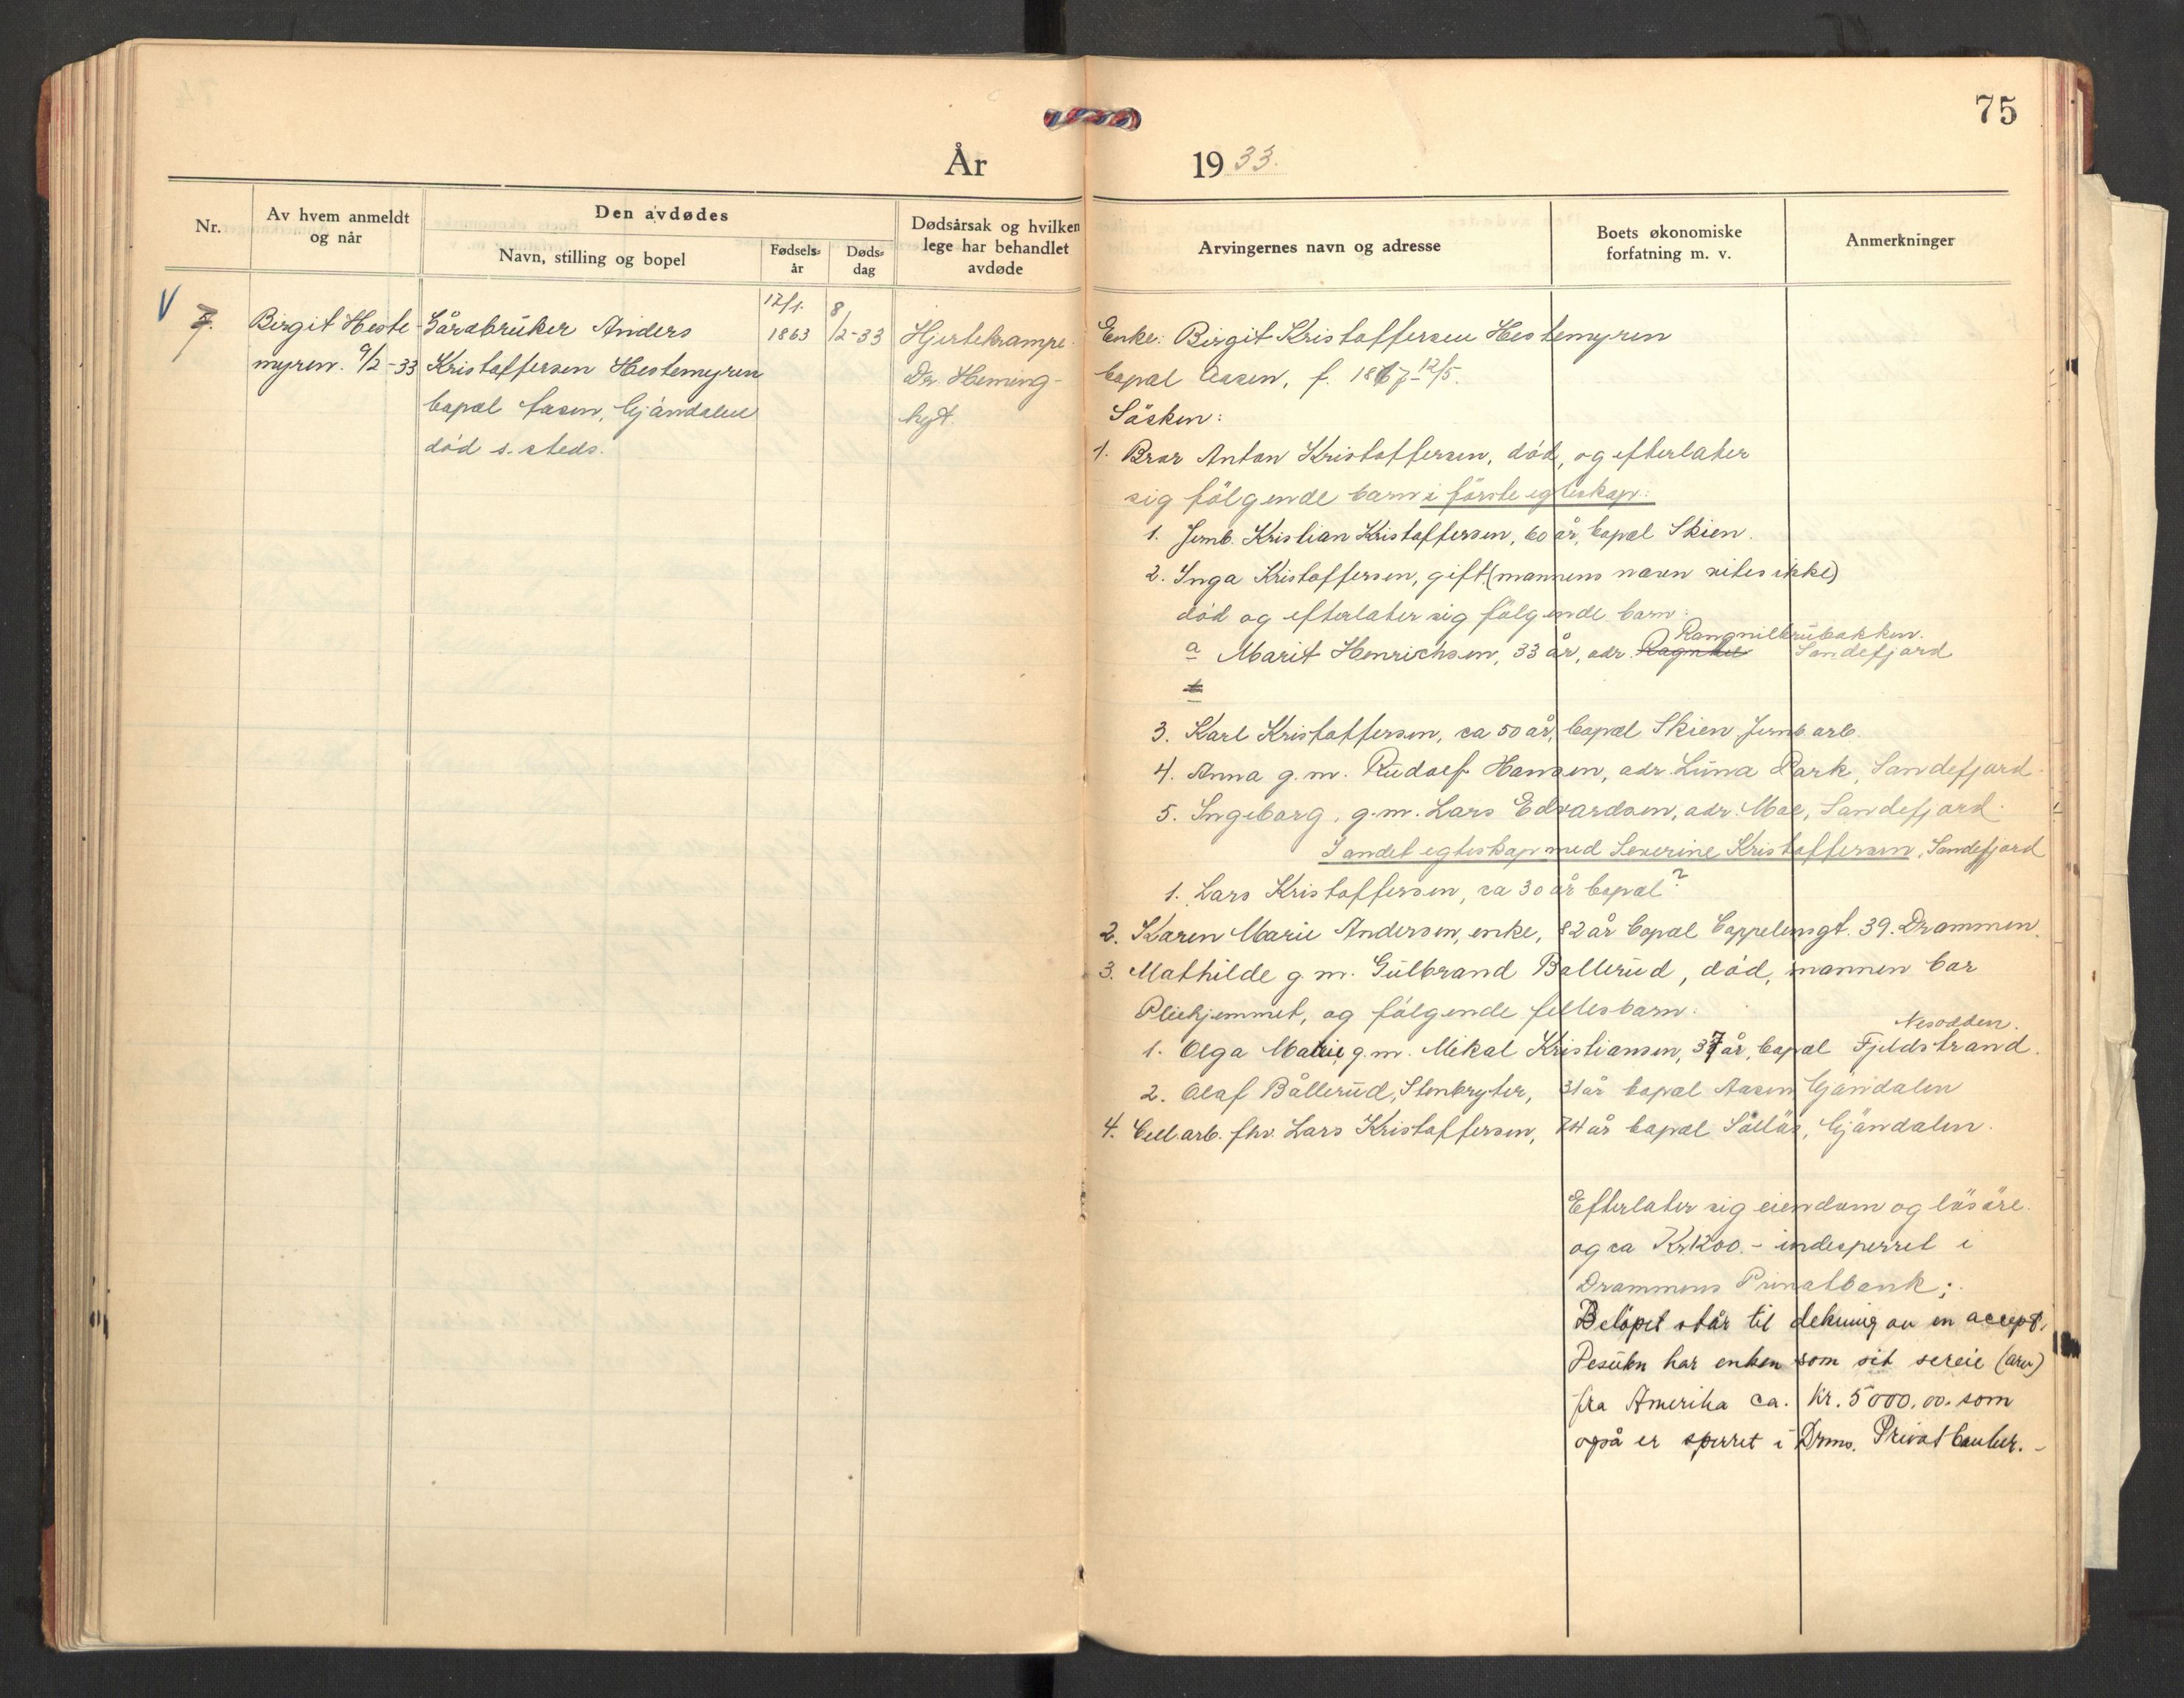 75
År 1933.
Nr.
Av hvem anmeldt
og når
Den avdødes
Navn, stilling og bopel
Fødsels-
år
Døds-
dag
Dødsårsak og hvilken
lege har behandlet
avdøde
Arvingernes navn og adresse
Boets økonomiske
forfatning m. v.
Anmerkninger
V 7.
Birgit Heste-
myren. 9/2-33
Gårdbruker Anders
Kristoffersen Hestemyren
bopæl Aasen, Gjöndalen
död s. steds.
12/1.
1863
8/2-33
Hjertekrampe.
Dr. Heming-
hyt.
Enke: Birgit Kristoffersen Hestemyren
bopæl Aasen, f. 1867 12/5.
Sösken:
1. Bror Anton Kristoffersen, död, og efterlater
sig fölgende barn i förste egteskap:
1. Jernb. Kristian Kristoffersen, 60 år, bopæl Skien.
2. Inga Kristoffersen, gift (mannens navn vites ikke)
död og efterlater sig fölgende barn:
Rangnilbrubakken.
a Marit Henrichsen, 33 år, adr. Ragnhil Sandefjord
3. Karl Kristoffersen, ca 50 år, bopæl Skien Jernb. arb.
4. Anna g. m. Rudolf Hansen, adr. Luna Park, Sandefjord.
5. Ingeborg, g. m. Lars Edvardsen, adr. Moe, Sandefjord.
I andet egteskap med Severine Kristoffersen, Sandefjord
1. Lars Kristoffersen, ca 30 år bopæl?
2. Karen Marie Andersen, enke, 82 år bopæl Cappelensgt. 39. Drammen.
3. Mathilde g. m. Gulbrand Bollerud, död, mannen bor
Pliehjemmet, og fölgende fellesbarn:
Nesodden.
1. Olga Marie g. m. Mikal Kristiansen, 37 år, bopæl Fjeldstrand.
2. Olaf Bållerud, Stenbryter, 31 år bopæl Aasen Gjöndalen
4. Cell. arb. fhv. Lars Kristoffersen, 74 år bopæl Sölläs, Gjöndalen.
Efterlater sig eiendom og lösöre.
og ca Kr. 1200.- indesperret i
Drammens Privatbank;
Belöpet står til dekning av en accept.
Desuten har enken som sit sereie (arv)
fra Amerika ca. kr. 5000,00. som
også er sperret i Drms. Privatbanker. -